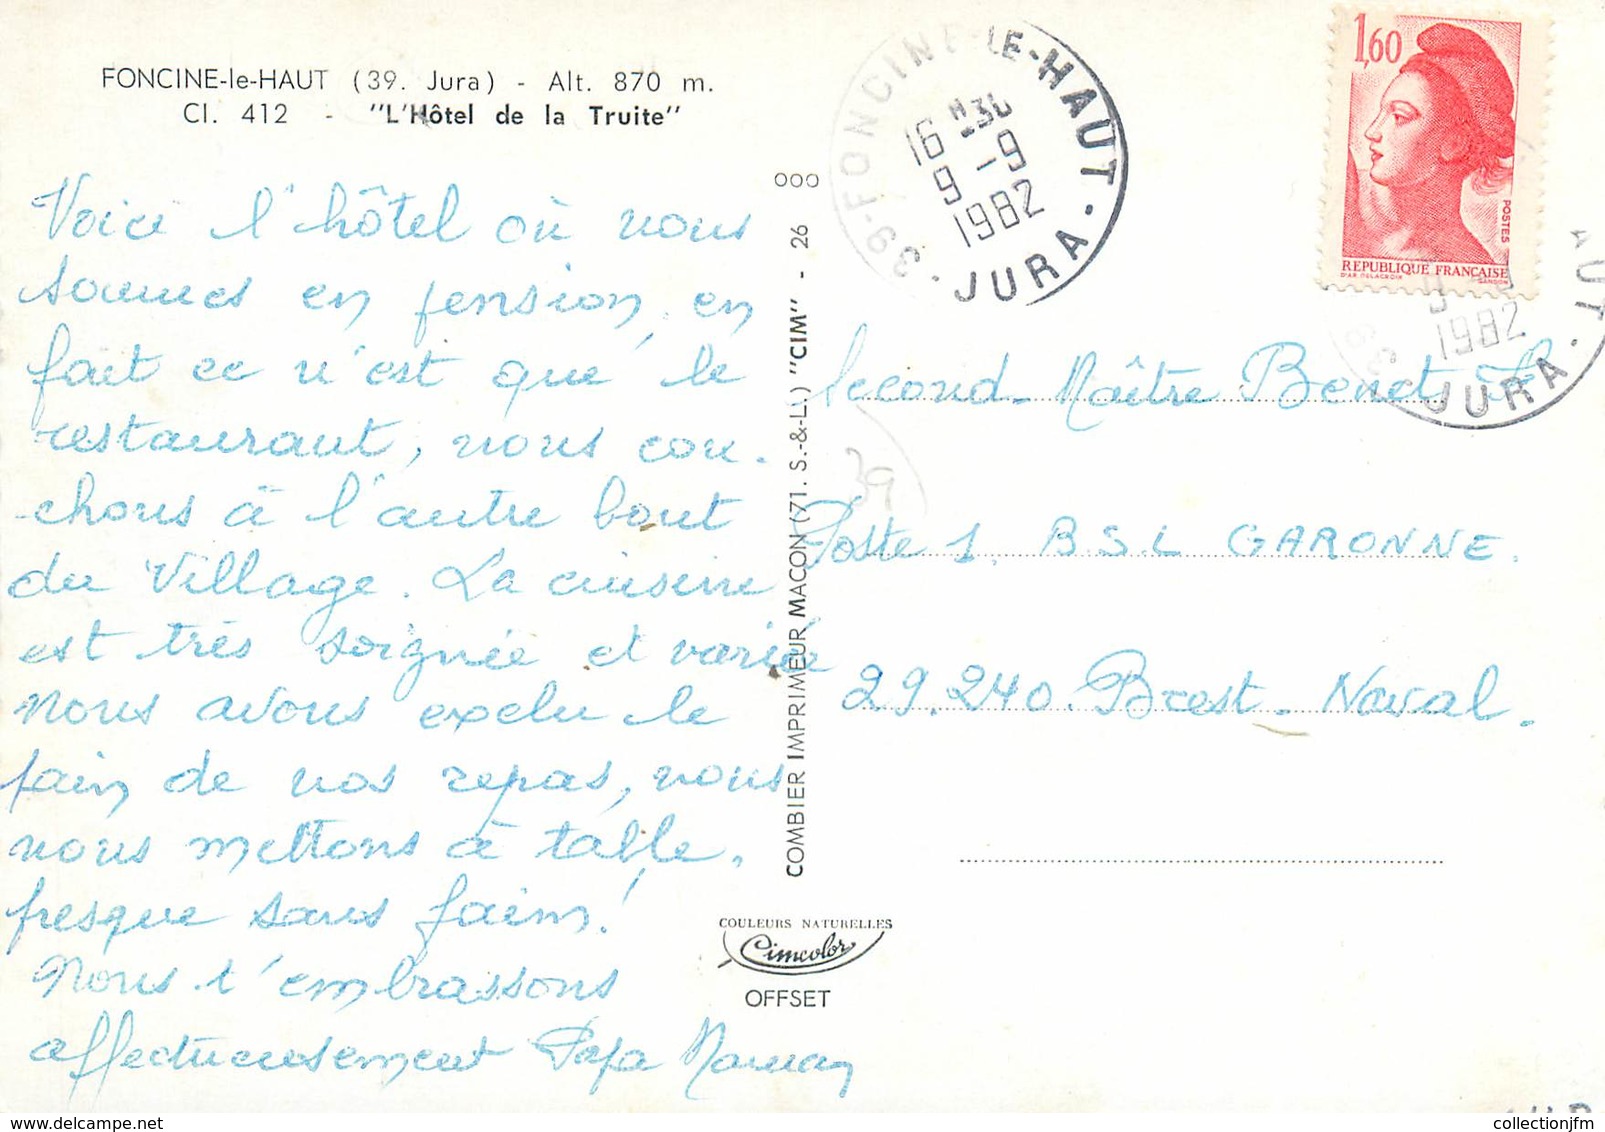 FONCINE-le-HAUT (39. Jura) - Alt. 870 m.
Cl. 412 - "L'Hôtel de la Truite"
Voici l'hôtel où nous
sommes en pension, en
fait ce n'est que le
restaurant, nous cou-
chons à l'autre bout
du village. La cuisine
est très soignée et variée
Nous avons exclu le
pain de nos repas, nous
nous mettons à table,
presque sans faim!
Nous t'embrassons
affectueusement Papa Maman
000
COMBIER IMPRIMEUR MACON (71. S.-&-L.) "CIM" - 26
COULEURS NATURELLES
Cimcolor
OFFSET
39-FONCINE-LE-HAUT
16 H30
9 -9
1982
JURA
1,60
POSTES
REPUBLIQUE FRANÇAISE
D'AP. DELACROIX
GANDON
AUT
1982
39
JURA
Second-Maître Benets
39
Poste 1. B.S.L GARONNE.
29.240. Brest-Naval.
collectionjfm